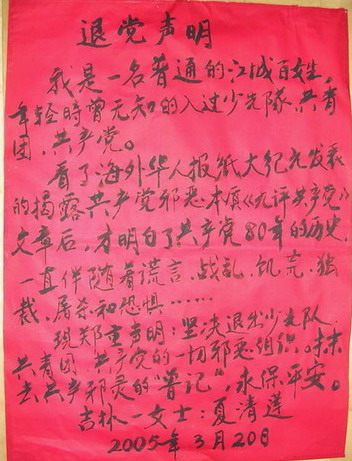 退党声明
我是一名普通的江城百姓,
年轻時曾无知的入过少先隊,共青
团,共产党。
看了海外华人报紙大纪元发表
的揭露共产党邪恶本质《九评共产党》
文章后,才明白了共产党80年的历史,
一直伴随着谎言、战乱、饥荒、独
裁、屠杀和恐惧……
现郑重声明:坚决退出少先队、
共青团、共产党的一切邪恶组织。抹
去共产邪灵的“兽记”,永保平安。
吉林一女士:夏清莲
2005年3月20日